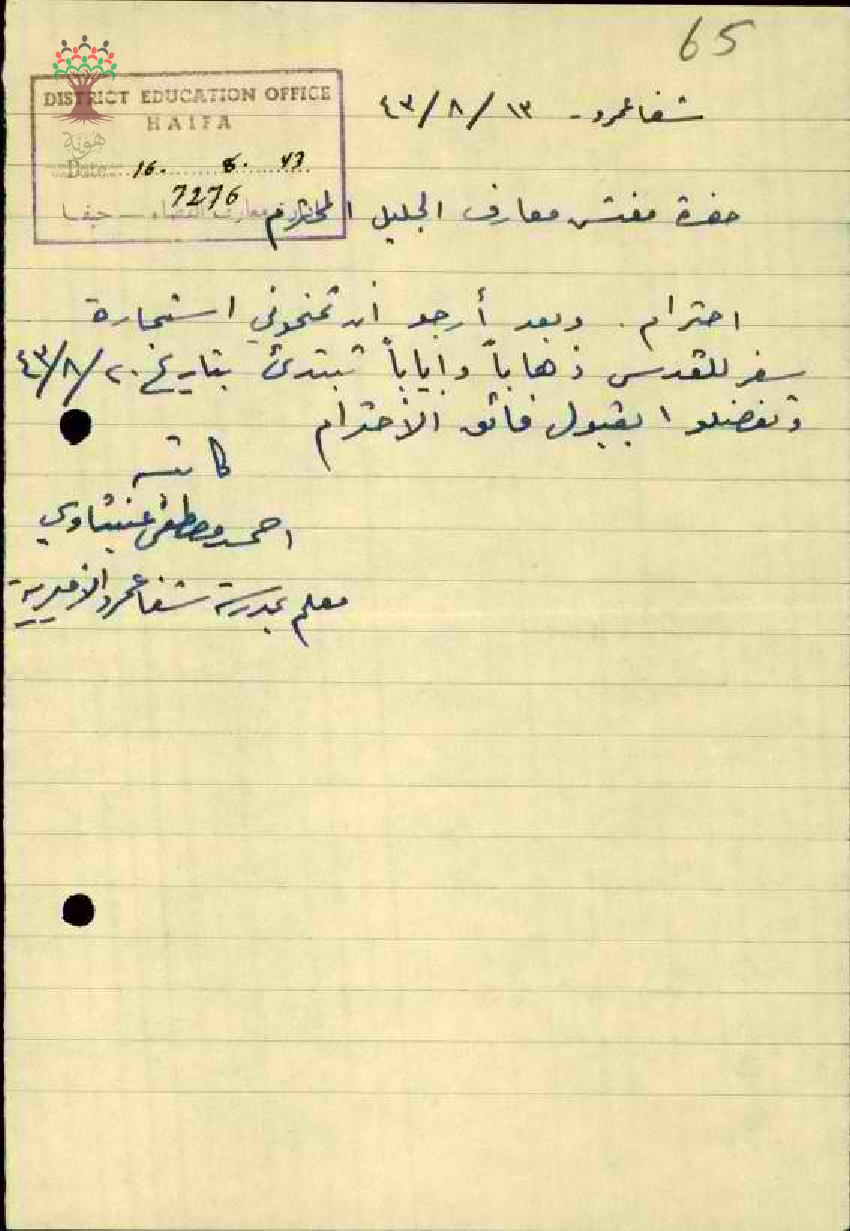 65
شفاعمرو - ١٣ / ٨ / ٤٣
DISTRICT EDUCATION OFFICE
HAIFA
هوية
Date 16. 8. 43
7276
معارف القضاء — حيفا
حضرة مفتش معارف الجليل المحترم
احترام. وبعد أرجو أن تمنحوني استمارة
سفر للقدس ذهاباً واياباً تبتدئ بتاريخ ٢٠/٨/٤٣
وتفضلوا بقبول فائق الأحترام
كاتبه
احمد مصطفى عنبتاوي
معلم بمدرسة شفاعمرو الأميرية